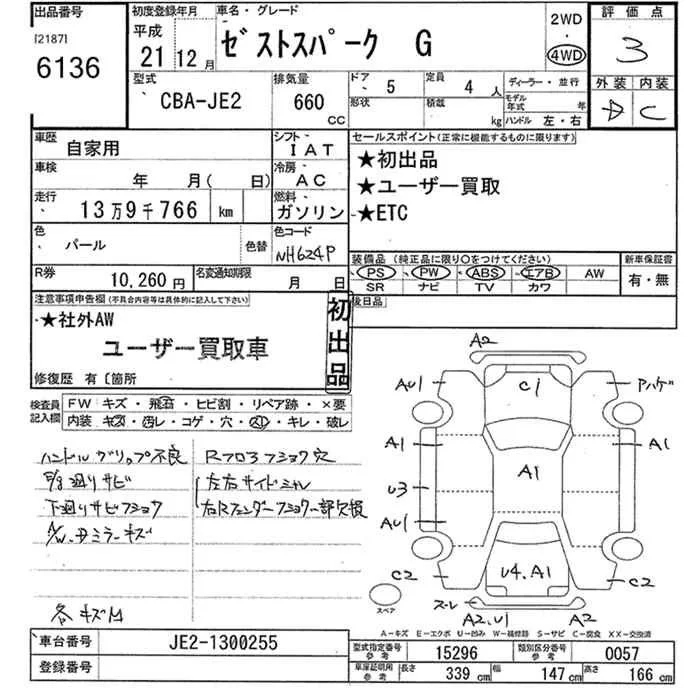 出品番号
[2187]
6136
初度登録年月
平成
21 12 月
車名・グレード
ゼストスパーク G
2WD
・
4WD
評価点
3
外装 内装
D C
型式
CBA-JE2
排気量
660
CC
ドア
5
定員
4 人
形状
積載
kg
ディーラー・並行
モデル年式 年
ハンドル 左・右
車歴
自家用
シフト
IAT
車検
年 月( 日)
冷房
AC
走行
13万9千766 km
燃料
ガソリン
色
パール
色替
色コード
NH624P
R券
10,260 円
名変通知期限
月 日
セールスポイント(正常に機能するものに限ります)
★初出品
★ユーザー買取
★ETC
装備品 (純正品に限り○をつけてください)
PS PW ABS エアB AW
SR ナビ TV カワ
新車保証書
有・無
後日品
注意事項申告欄(不具合内容等は具体的に記入して下さい)
★社外AW
ユーザー買取車
初出品
修復歴 有〔箇所
検査員記入欄
FW キズ・飛石・ヒビ割・リペア跡・×要
内装 キズ・汚レ・コゲ・穴・スレ・キレ・破レ
ハンドルグリップ不良
下廻りサビ
下廻りサビフショク
A/W・Dミラーキズ
各キズM
Rフロアフショク穴
左右サイドシル
右Rフェンダーフショク一部欠損
A2
AU1
C1
Aハゲ
A1
A1
A1
U3
AU1
C2
U4.A1
C2
スレ
A2.U1
A2
スペア
A−キズ E−エクボ U−凹み W−補修跡 S−サビ C−腐食 XX−交換済
車台番号
JE2-1300255
登録番号
型式指定番号 参考
15296
類別区分番号 参考
0057
車庫証明用 参考
長さ
339 cm
幅
147 cm
高さ
166 cm